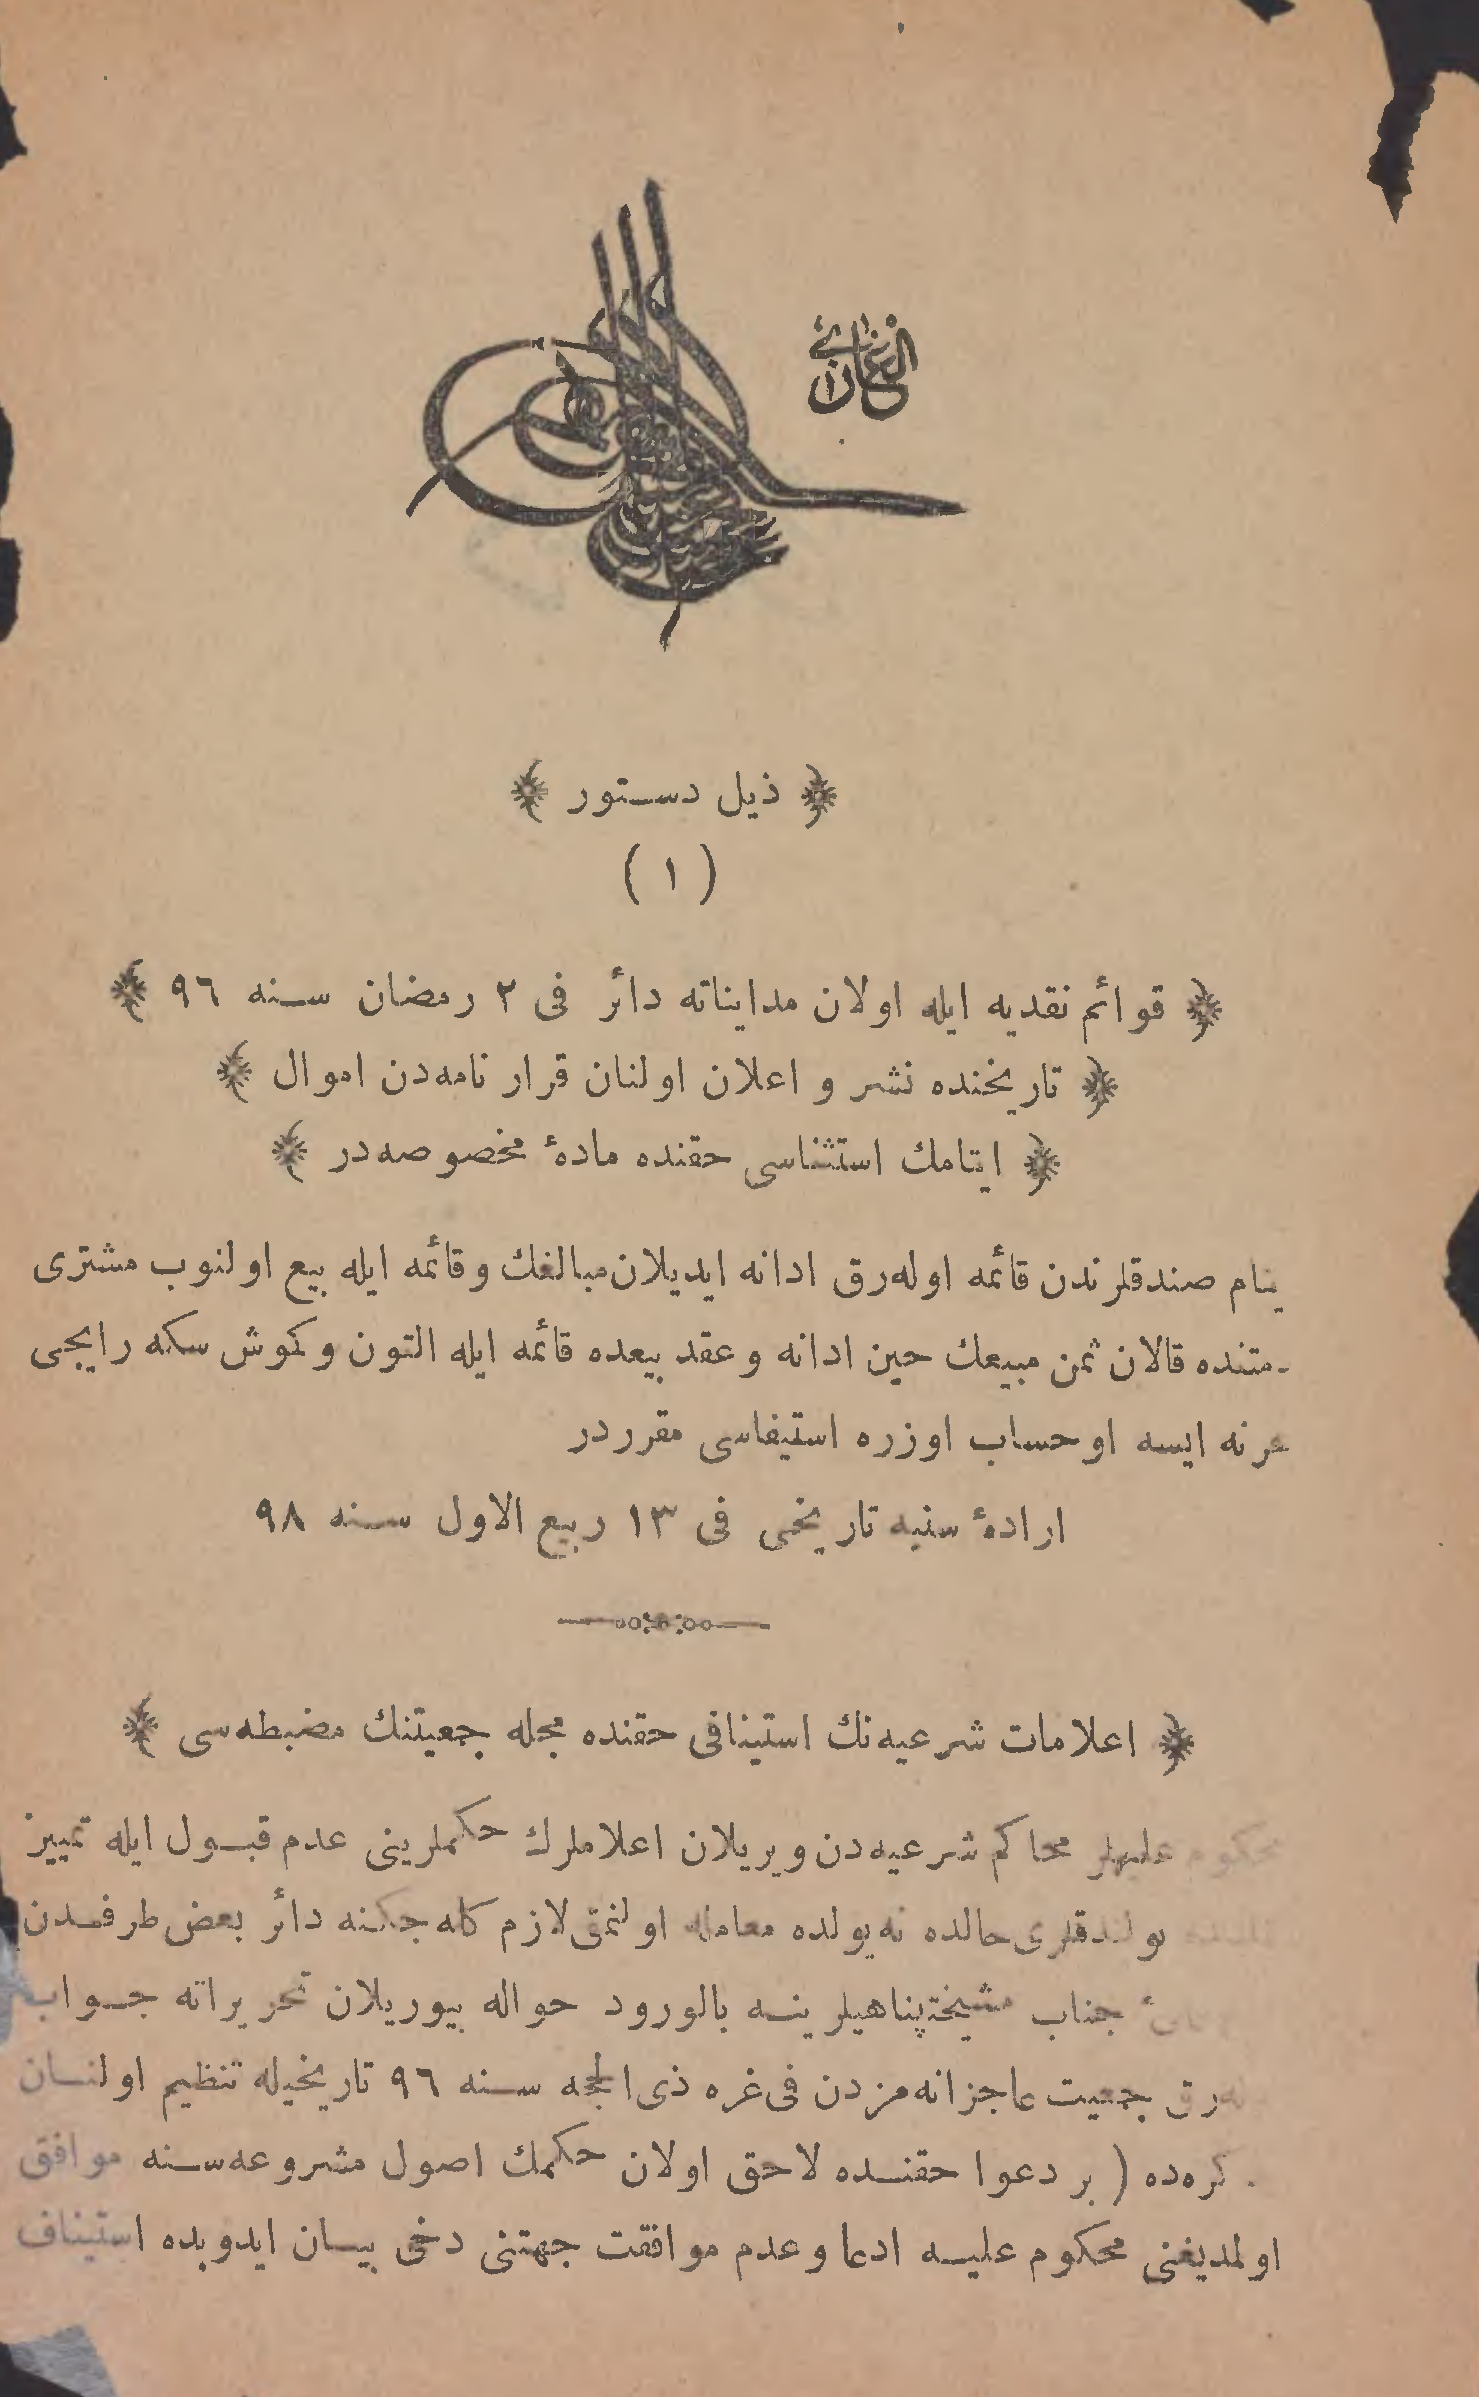 الغازی
﴿ ذیل دستور ﴾
( ١ )
﴿ قوائم نقدیه ایله اولان مدایناته دائر فی ٢ رمضان سنه ٩٦ ﴾
﴿ تاریخنده نشر و اعلان اولنان قرار نامه‌دن اموال ﴾
﴿ ایتامك استثناسی حقنده مادۀ مخصوصه‌در ﴾
صندقلرندن قائمه اوله‌رق ادانه ایدیلان مبالغك وقائمه ایله بیع اولنوب مشتری
قالان ثمن مبیعك حین ادانه و عقد بیعده قائمه ایله التون و کموش سکه رایجی
نه ایسه اوحساب اوزره استیفاسی مقرردر
ارادۀ سنیه تاریخی فی ١٣ ربیع الاول سنه ٩٨
﴿ اعلامات شرعیه‌نك استینافی حقنده مجله جمعیتنك مضبطه‌سی ﴾
محاکم شرعیه‌دن ویریلان اعلاملرك حکملرینی عدم قبول ایله تمییز
بولندقلری حالده نه‌یولده معامله اولنمق لازم کله‌جکنه دائر بعض طرفدن
جناب مشیختپناهیلرینه بالورود حواله بیوریلان تحریراته جواب
جمعیت عاجزانه‌مزدن فی‌غره ذی‌الحجه سنه ٩٦ تاریخیله تنظیم اولنان
( بر دعوا حقنده لاحق اولان حکمك اصول مشروعه‌سنه موافق
اولمدیغنی محکوم علیه ادعا وعدم موافقت جهتنی دخی بیان ایدوبده استیناف